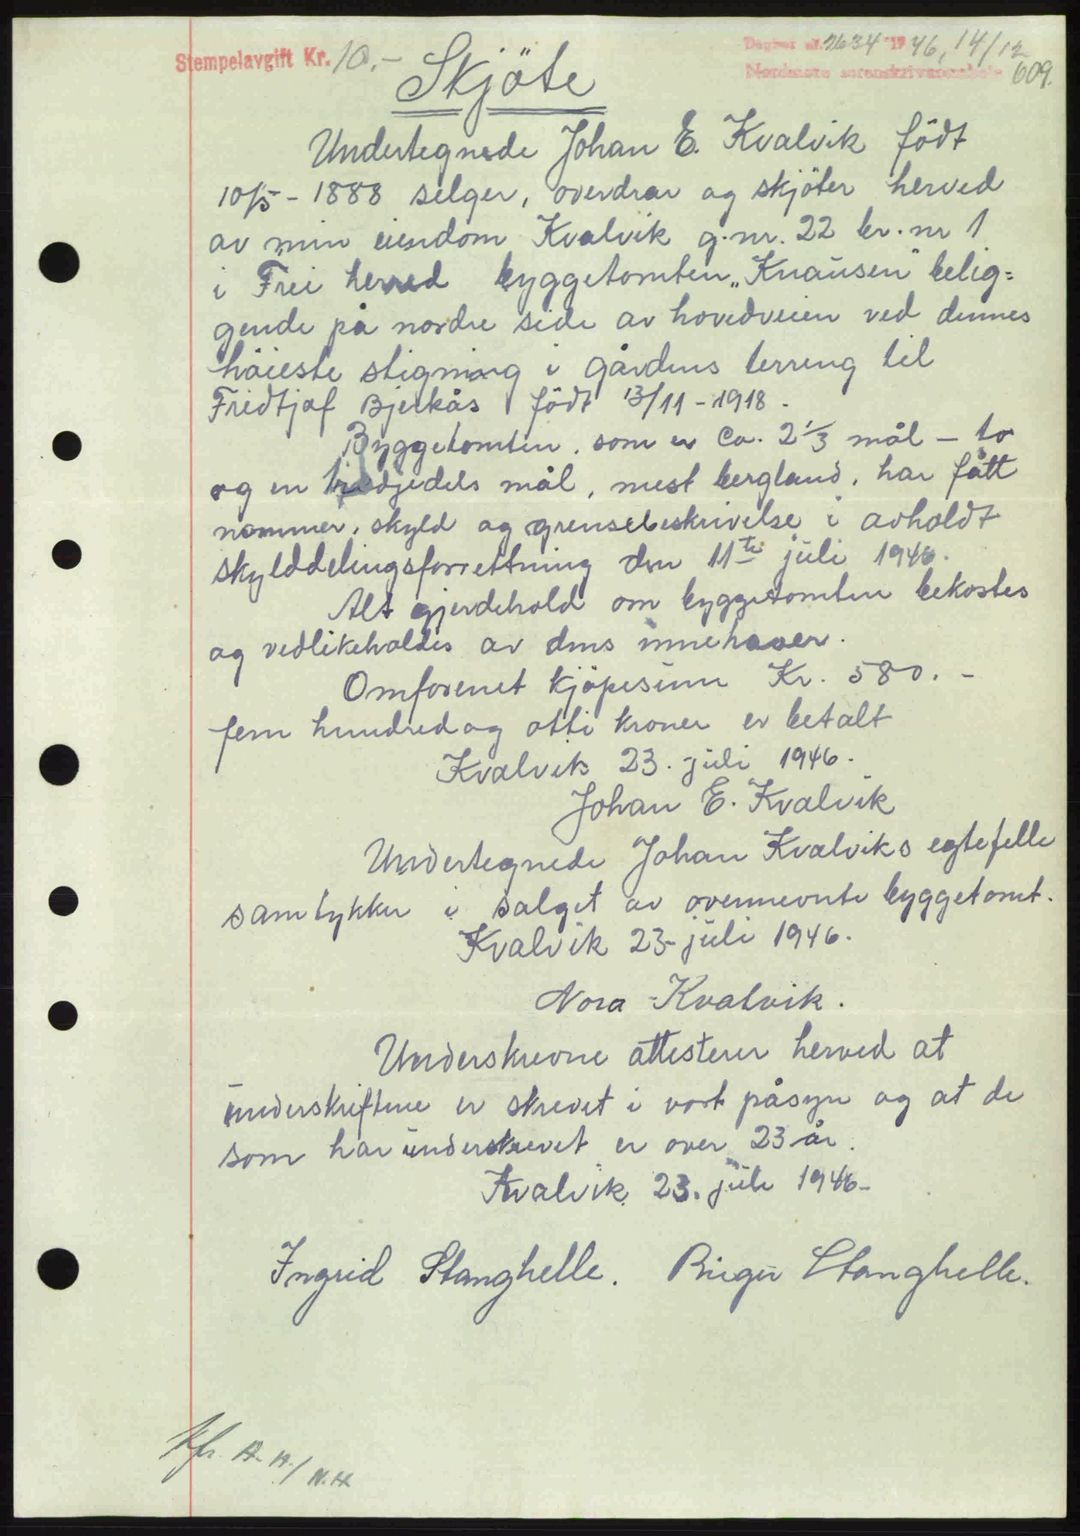 Stempelavgift Kr. 10.-
Dagbok nr. 2634 19 46, 14/12
Nordmøre sorenskriverembede 609.
Skjöte
Undertegnede Johan E. Kvalvik födt
10/5 - 1888 selger, overdrar og skjöter herved
av min eiendom Kvalvik g.nr. 22 br. nr 1
i Frei herred byggetomten „Knausen" belig=
gende på nordre side av hovedveien ved dennes
höieste stigning i gårdens terreng til
Fridtjof Bjerkås födt 13/11 - 1918 -
Byggetomten, som er ca. 2 1/3 mål - to
og en tredjedels mål, mest bergland, har fått
nommer, skyld og grensebeskrivelse i avholdt
skylddelingsforrettning den 11te juli 1946.
Alt gjerdehold om byggetomten bekostes
og vedlikeholdes av dens innehaver.
Omforenet kjöpesum Kr. 580. -
fem hundred og otti kroner er betalt
Kvalvik 23. juli 1946.
Johan E. Kvalvik
Undertegnede Johan Kvalviks egtefelle
samtykker i salget av ovennevnte byggetomt.
Kvalvik 23 juli 1946.
Nora Kvalvik.
Underskrevne attesterer herved at
underskriftene er skrevet i vort påsyn og at de
som har underskrevet er over 23 år.
Kvalvik 23. juli 1946-
Ingrid Stanghelle. Birger Stanghelle.
Kfr. A.A./N.H